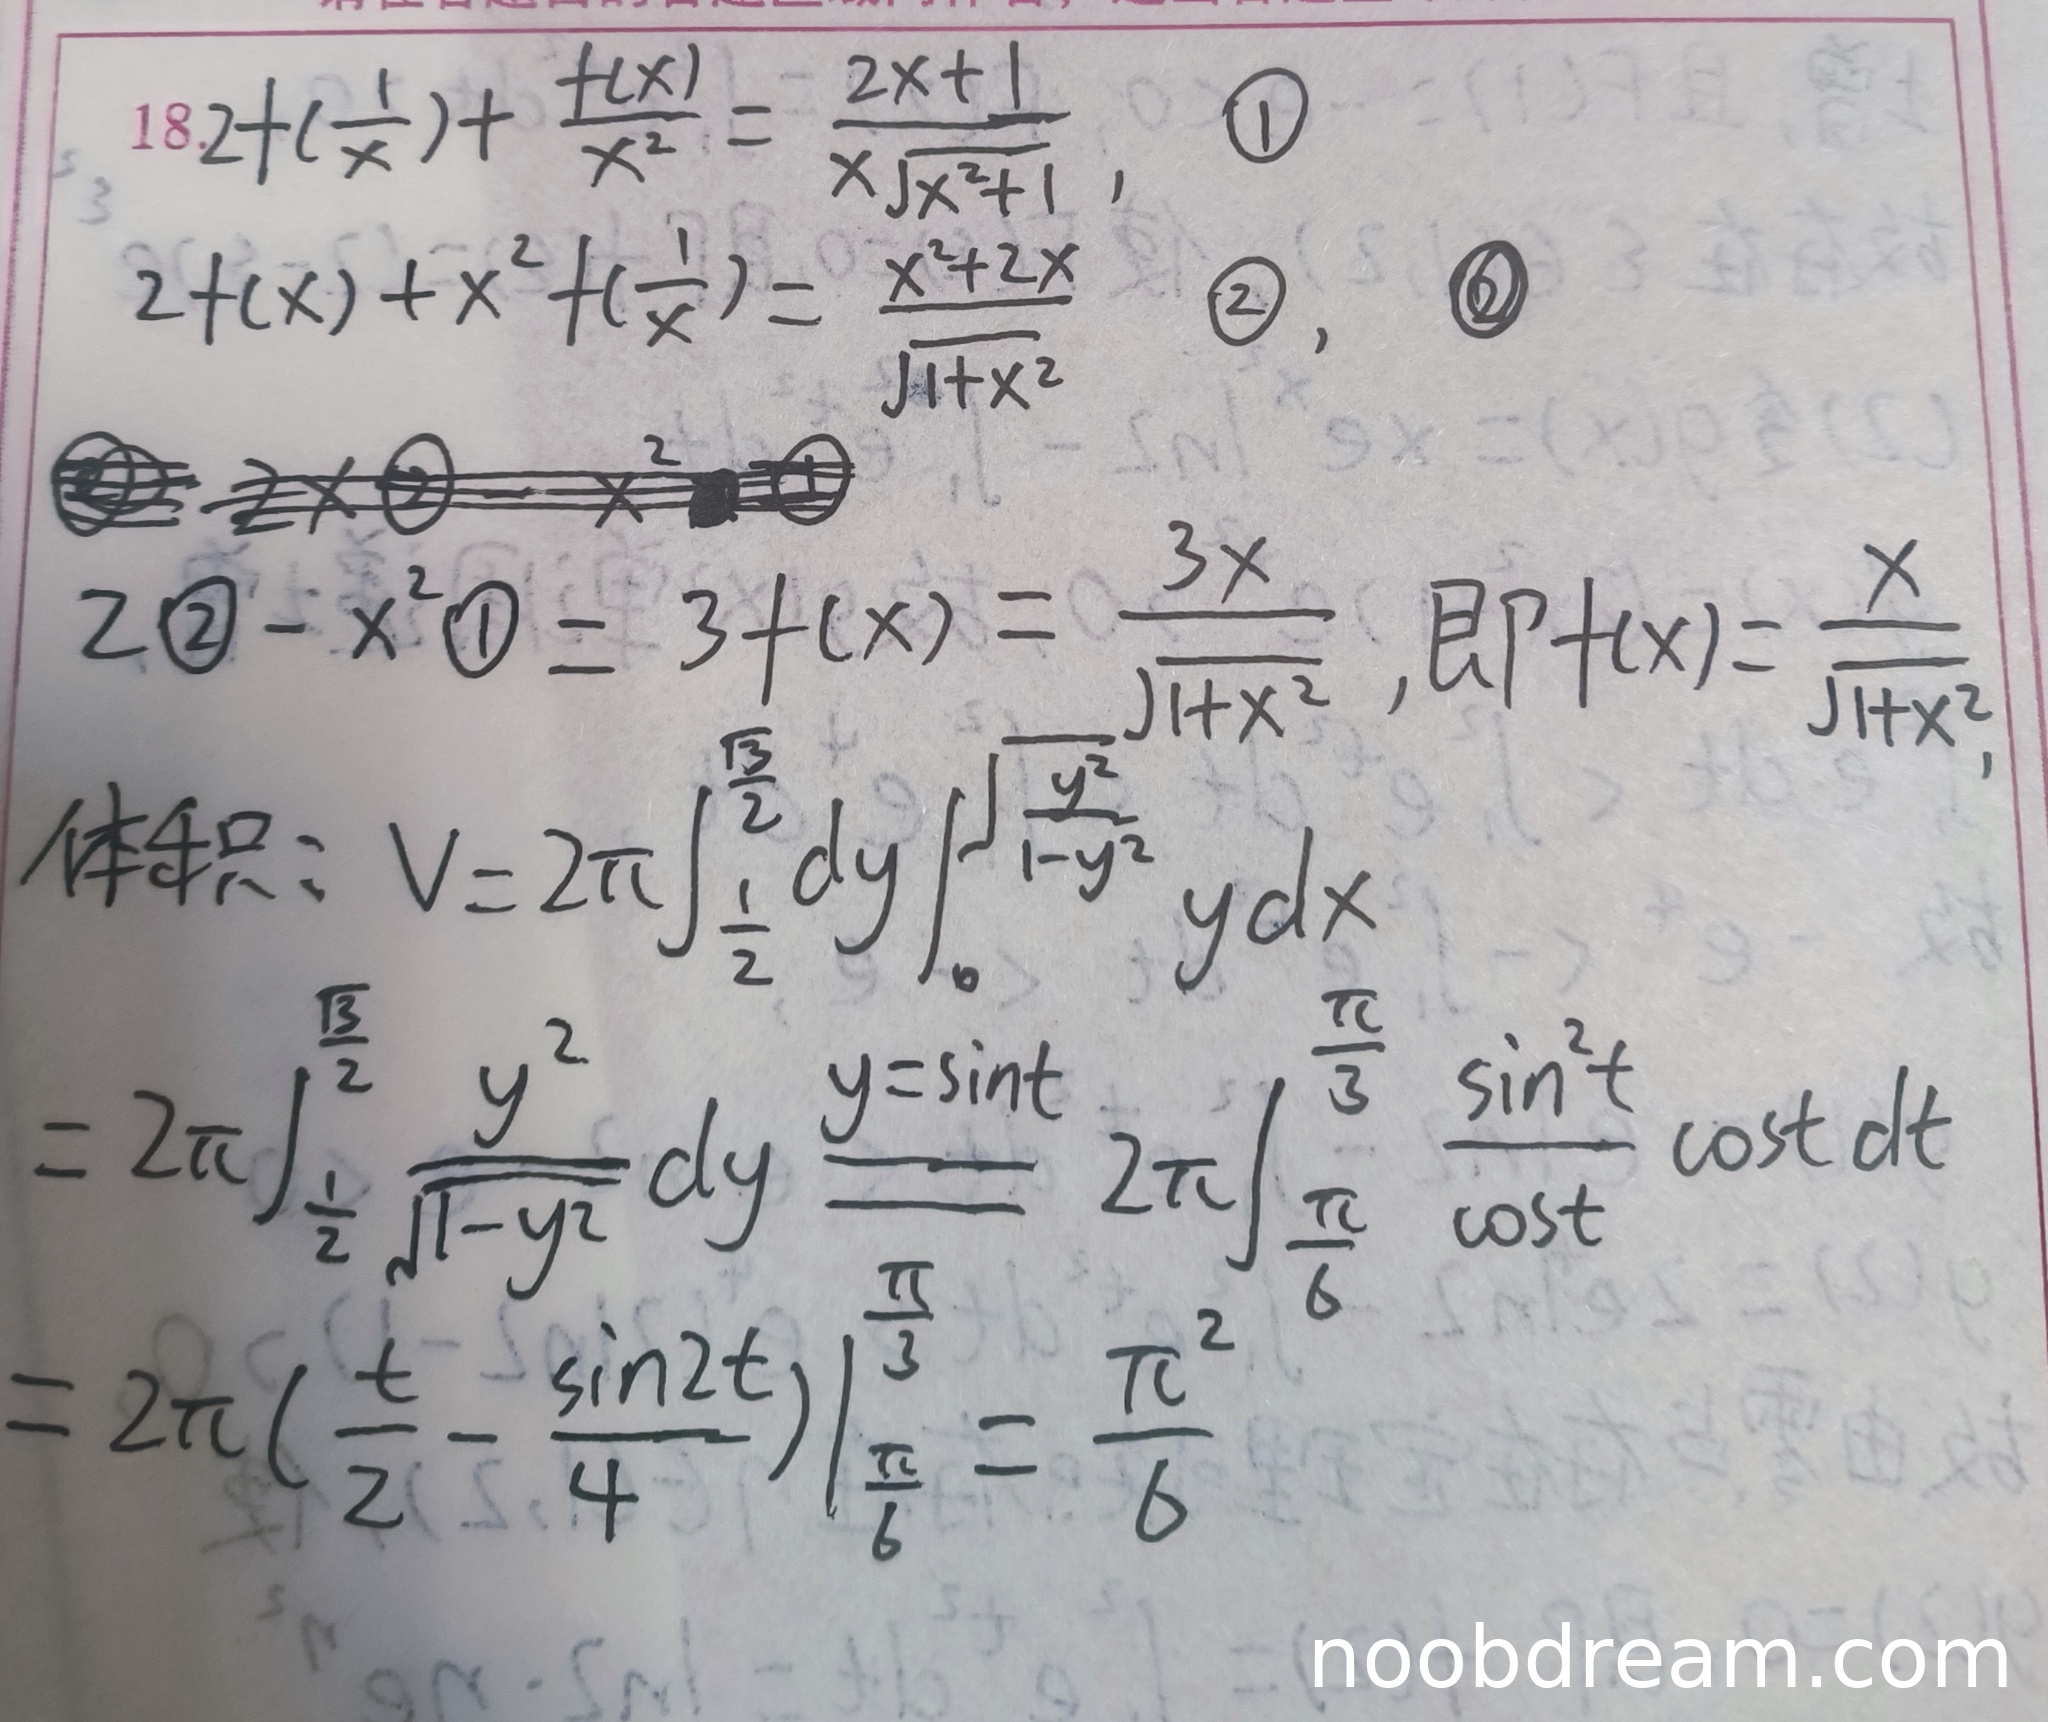 18. 2f(1/x) + f(x)/x² = (2x+1)/(x√(x²+1)), ①
2f(x) + x²f(1/x) = (x²+2x)/√(1+x²) ②,
2② - x²① = 3f(x) = 3x/√(1+x²), 即f(x) = x/√(1+x²),
体积: V = 2π∫_{1/2}^{√3/2} dy ∫_0^{√(y²/(1-y²))} y dx
= 2π∫_{1/2}^{√3/2} y²/√(1-y²) dy (y=sint) = 2π∫_{π/6}^{π/3} (sin²t/cost) cost dt
= 2π(t/2 - sin2t/4)|_{π/6}^{π/3} = π²/6
noobdream.com